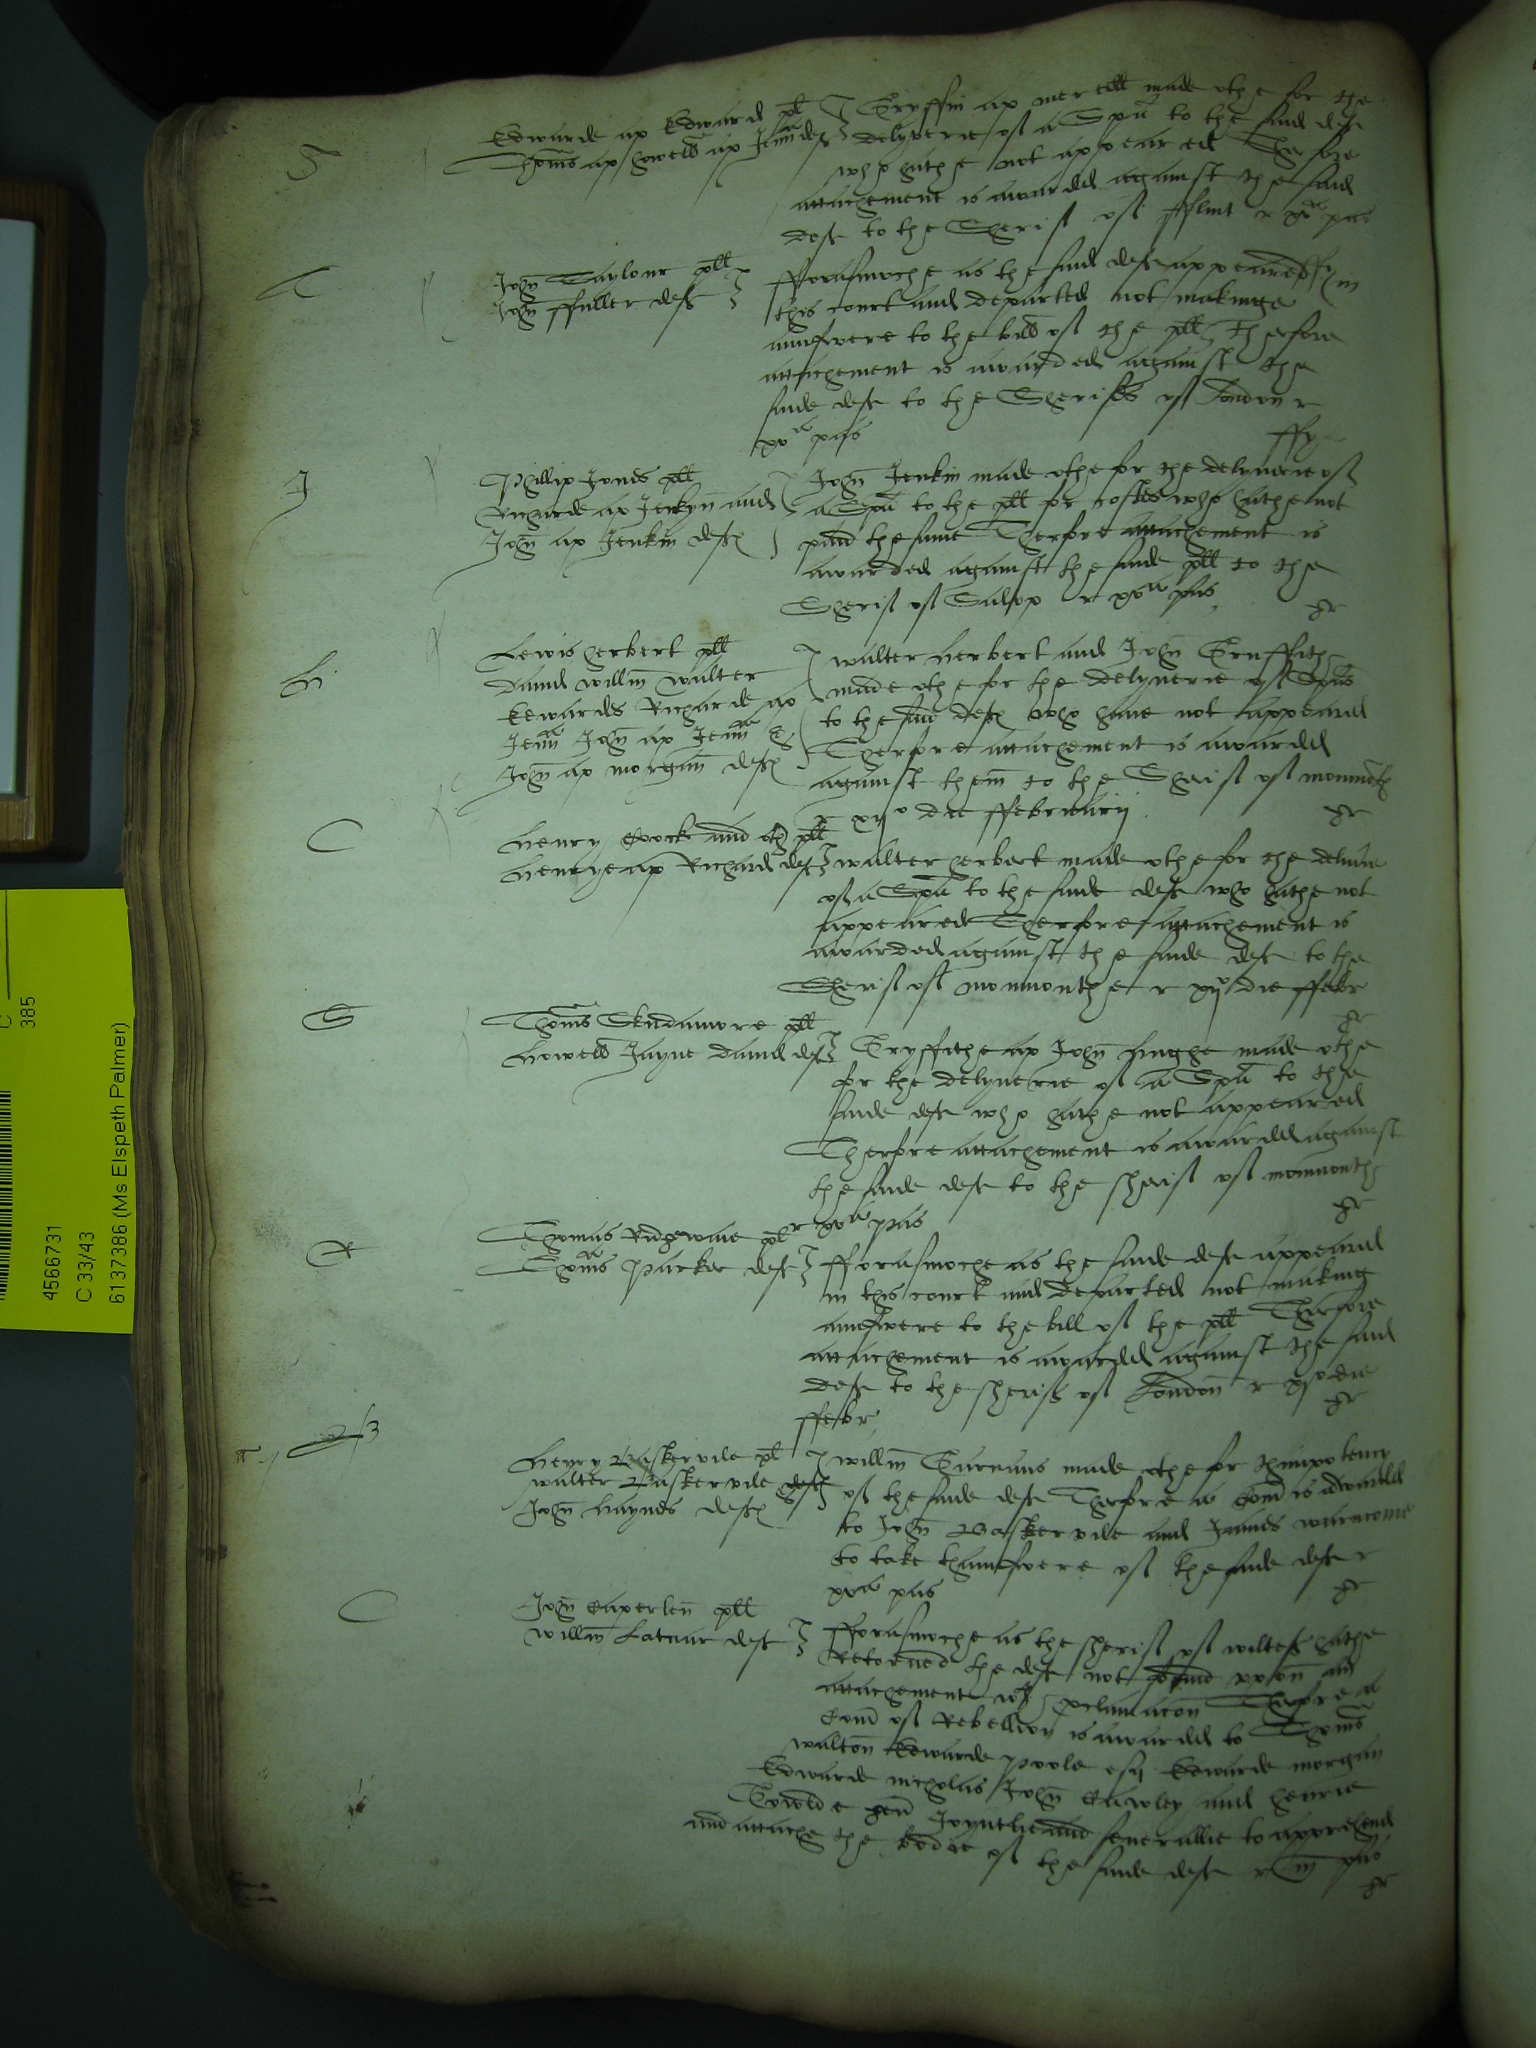 Edwarde ap Edward pll
Thomas ap howell ap Jeuan def
Gryffin ap meredd made othe for the
delyverie of a Spa to the said def
who hathe not appeared Therfore
attachement is awarded against the said
def to the Sherif of fflint r xv pas
John Taylour pll
John ffuller def
fforasmoche as the said def appeared in
this court and departed not makinge
aunswere to the bill of the pll Therfore
attachement is awarded against the
saide def to the Sheriffes of London r
xva pas
ffy
Phillip Jones pll
Richarde ap Jenkyn and
John ap Jenkin def
John Jenkin made othe for the delyverie of
a Spa to the pll for costes who hathe not
paid the same Therfore attachement is
awarded against the saide pll to the
Sherif of Salop r xva pas
hr
Lewis herbert pll
David willm walter
Edwardes Richarde ap
Jeuan John ap Jeuan &
John ap morgan def
walter herbert and John Gruffith
made othe for the delyverie of Spas
to the said def who have not appeared
Therfore attachement is awarded
against them to the Sherif of monmoth
r xijo die ffebruarij
hr
Henry Cocke and oth pll
Henrye ap Richard def
walter herbert made othe for the delive
of a Spa to the saide def who hathe not
appeared Therfore attachement is
awarded against the saide def to the
Sherif of monmouthe r xijo die ffebr
hr
Thomas Skudamore pll
Howell Jayne David def
Gryffithe ap John hughe made othe
for the delyverie of a Spa to the
saide def who hathe not appeared
Therfore attachement is awarded against
the saide def to the sherif of monmouth
r xva pas
hr
Thomas Ridgewaie pl
Thomas Parker def
fforasmoche as the saide def appeared
in this court and departed not making
aunswere to the bill of the pll Therfore
attachement is awarded against the said
def to the sherif of London r die
ffebr
hr
Henry Baskervile pl
walter Baskervile &
John haynes def
willm Gurnans made othe for thimpotency
of the saide def Therfore a Com is awarded
to John Baskervile and James warncome
to take thaunswere of the saide def r
xva pas
hr
John Caperlen pll
willm Latnar def
fforasmoche as the sherif of wiltes hathe
Retorned the def not found upon an
attachement wt proclamacon Therfore a
Com of Rebellion is awarded to Thomas
walton Edwarde poole esq Edwarde morgan
Edwarde nicholas John Cawley and henrie
gen Joyntlie and severallie to apprehend
and attache the bodie of the saide def r m pas
hr
4566731
C 33/43
6137386 (Ms Elspeth Palmer)
C
385